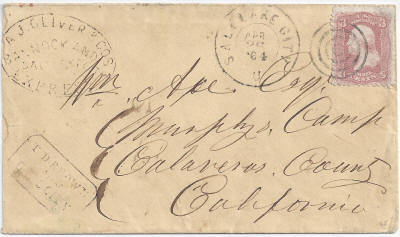 A. J. OLIVER & CO'S
BANNOCK AND
SALT LAKE
EXPRESS
SALT LAKE CITY
64
U
3 3
Wm. Ace Esq.
Murphys Camp
Calaveras County
California